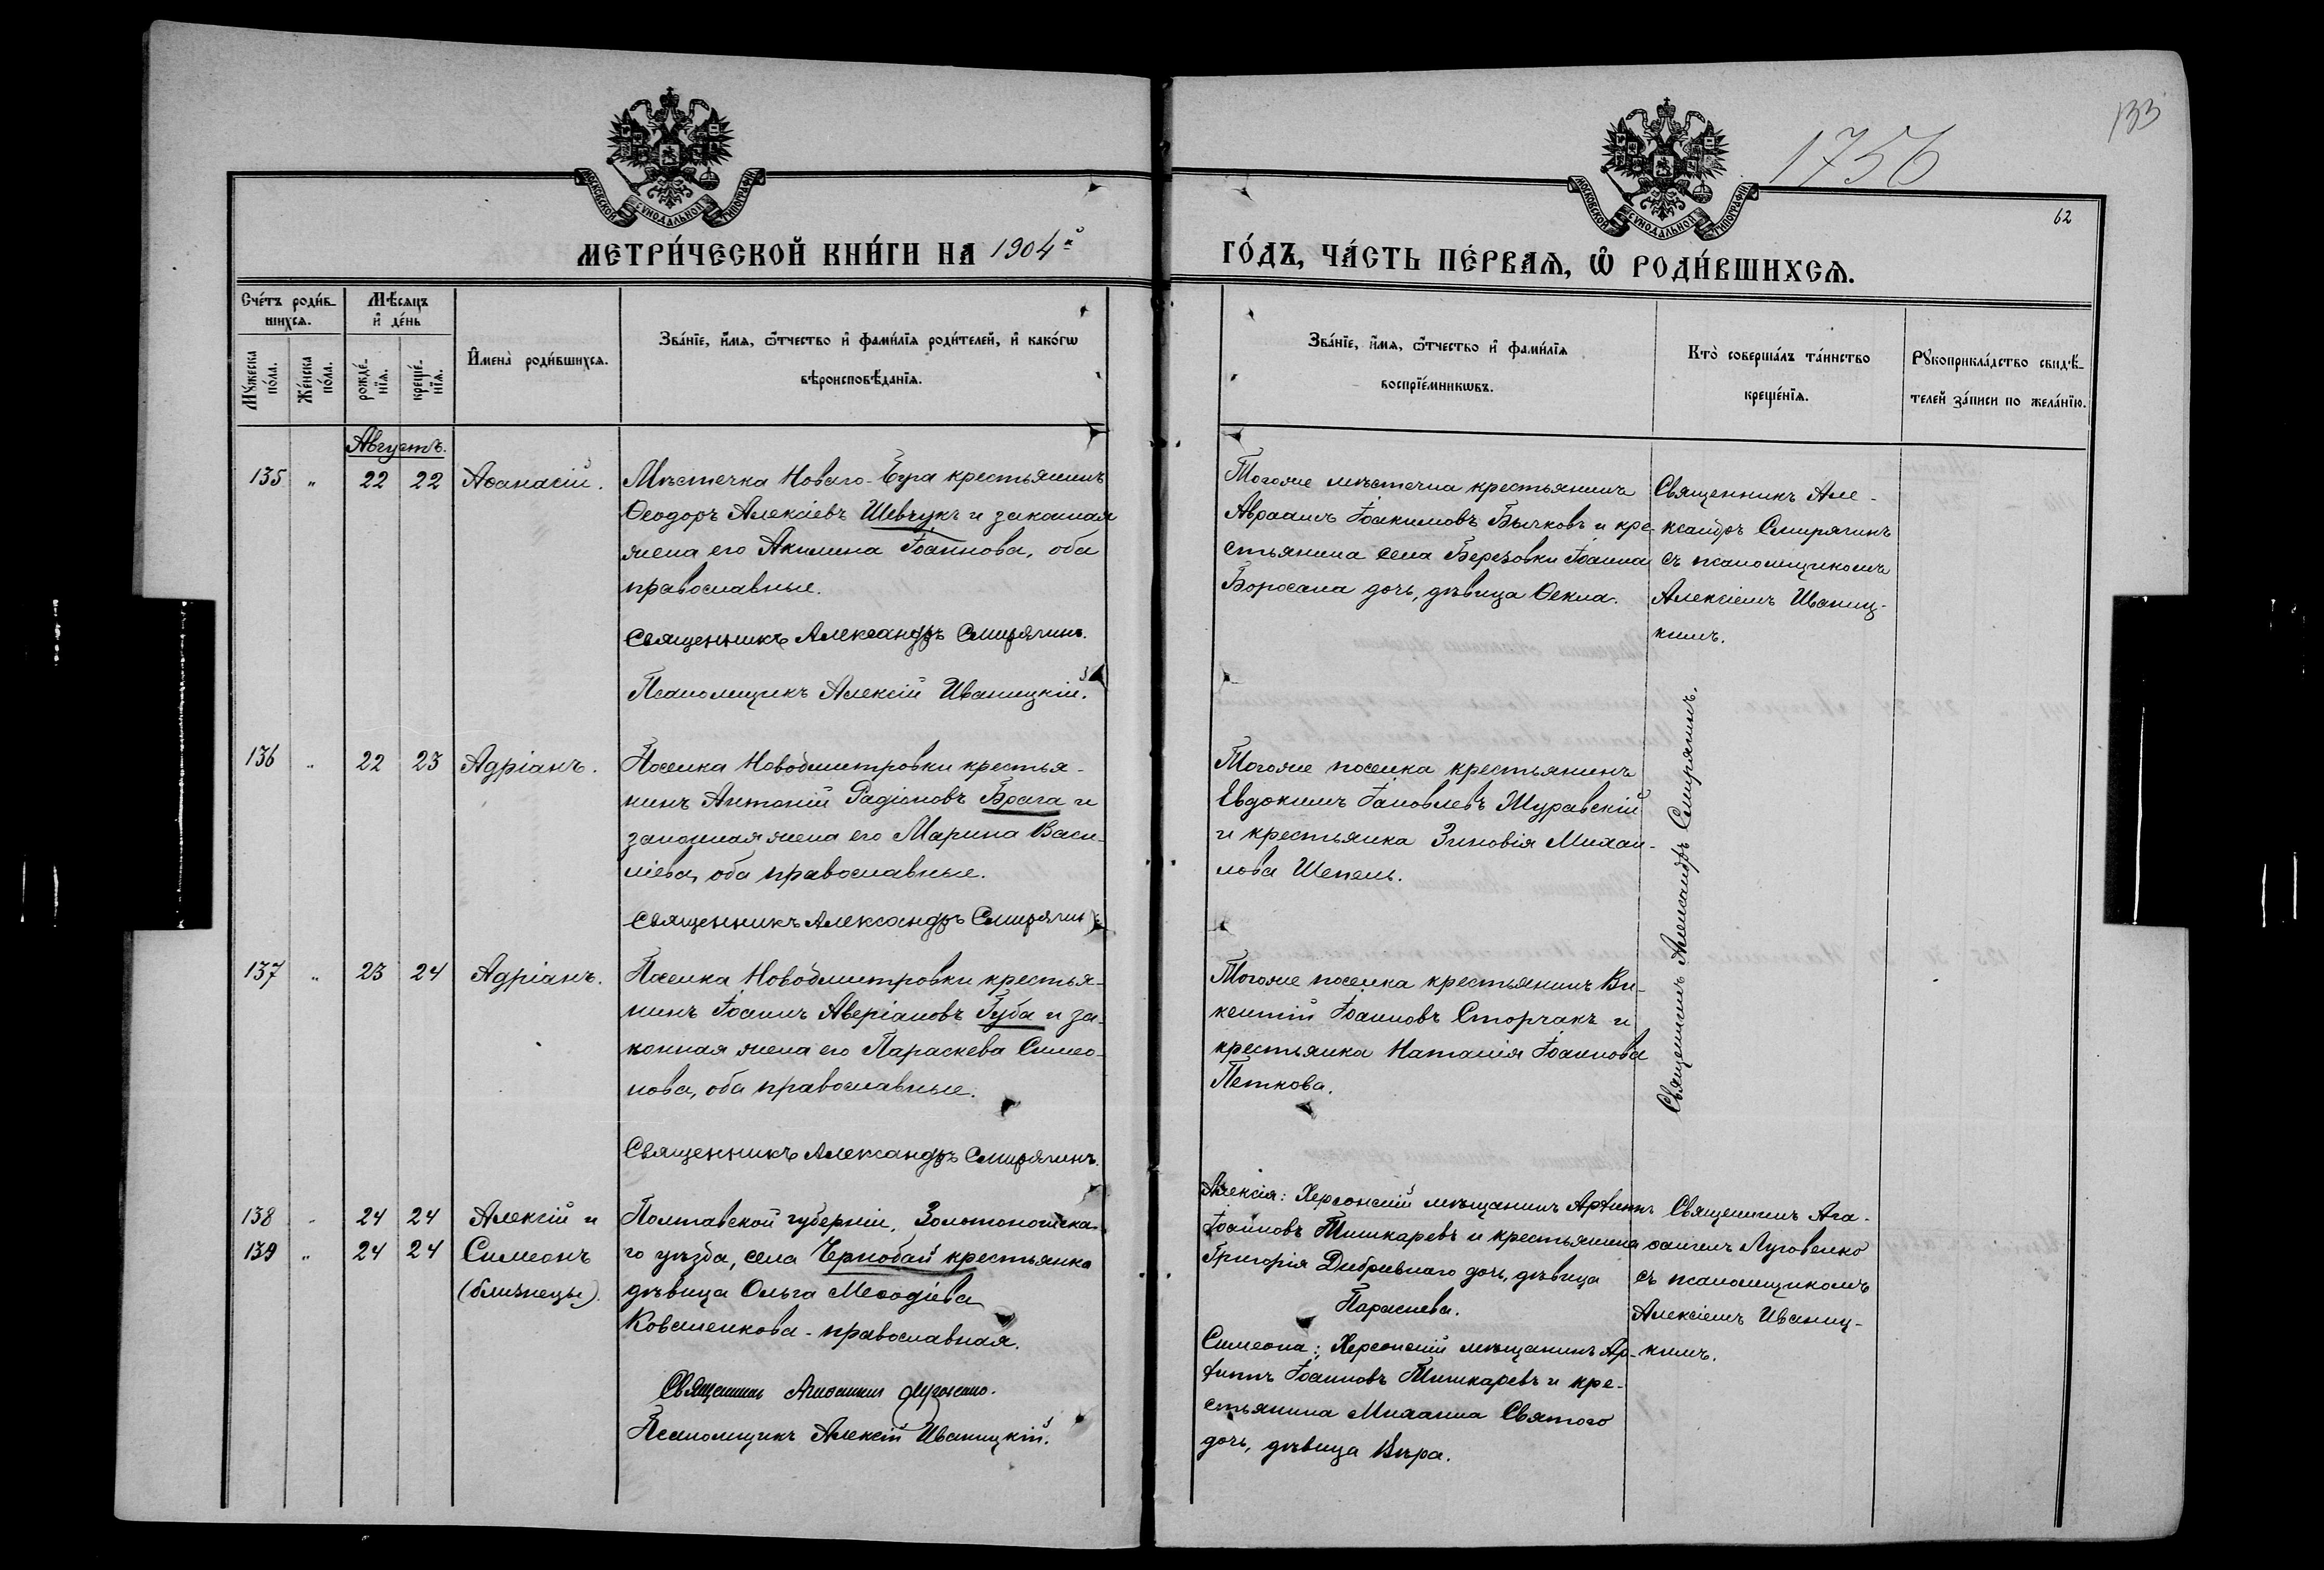 133
1756
МОСКОВСКОЙ СѴНОДАЛЬНОЙ ТИПОГРАФІИ
МОСКОВСКОЙ СѴНОДАЛЬНОЙ ТИПОГРАФІИ
62
МЕТРИ́ЧЕСКОЙ КНИ́ГИ НА 1904й
ГО́ДЪ, ЧА́СТЬ ПЕ́РВАѦ, Ѡ РОДИ́ВШИХСѦ.
Сче́тъ роди́в-
шихсѧ.
Мꙋ́жеска по́ла.
Же́нска по́ла.
Мѣ́сѧцъ
и҆ де́нь
рожде́-
нїѧ.
креще́-
нїѧ.
И҆мена̀ роди́вшихсѧ.
Зва́нїе, и҆́мѧ, ѻ҆́тчество и҆ фами́лїѧ роди́телей, и҆ како́гѡ
вѣроисповѣ́данїѧ.
Зва́нїе, и҆́мѧ, ѻ҆́тчество и҆ фами́лїѧ
воспрїе́мникѡвъ.
Кто̀ соверша́лъ та́инство
креще́нїѧ.
Рꙋкоприкла́дство свидѣ́-
телей за́писи по жела́нїю.
Августъ.
135 " 22 22 Аѳанасій.
Мѣстечка Новаго-Буга крестьянинъ
Ѳеодоръ Алексіевъ Шевчукъ и законная
жена его Акилина Іоаннова, оба
православные.
Священникъ Александръ Смирягинъ.
Псаломщикъ Алексій Иваницкій.
Тогоже мѣстечка крестьянинъ
Авраамъ Іоакимовъ Бычковъ и кре-
стьянина села Березовки Іоанна
дочь, дѣвица Ѳекла.
Священникъ Але-
ксандръ Смирягинъ
съ псаломщикомъ
Алексіемъ Иваниц-
кимъ.
136 " 22 23 Адріанъ.
Поселка Новодмитровки крестья-
нинъ Антоній Радіоновъ Брага и
законная жена его Марина Васи-
ліева, оба православные.
Священникъ Александръ Смирягинъ
Тогоже поселка крестьянинъ
Евдокимъ Іаковлевъ Журавскій
и крестьянка Зиновія Михаи-
лова Шепель.
Священникъ Александръ Смирягинъ.
137 " 23 24 Адріанъ.
Поселка Новодмитровки крестья-
нинъ Іоаннъ Аверіановъ Губа и за-
конная жена его Параскева Симео-
нова, оба православные.
Священникъ Александръ Смирягинъ.
Тогоже поселка крестьянинъ Ви-
кентій Іоанновъ Сторчакъ и
крестьянка Наталія Іоаннова
Петкова.
138 " 24 24 Алексій и
139 " 24 24 Симеонъ
(близнецы).
Полтавской губерніи, Золотоношска-
го уѣзда, села Чернобай крестьянка
дѣвица Ольга Меѳодіева
Коваленкова - православная.
Священникъ Агаѳангелъ Луговенко.
Псаломщикъ Алексій Иваницкій.
Алексія: Херсонскій мѣщанинъ
Іоанновъ Тишкаревъ и крестьянина
Григорія дочь, дѣвица
Параскева.
Симеона: Херсонскій мѣщанинъ
Іоанновъ Тишкаревъ и кре-
стьянина Михаила Святого
дочь, дѣвица Вѣра.
Священникъ Ага-
ѳангелъ Луговенко
съ псаломщикомъ
Алексіемъ Иваниц-
кимъ.